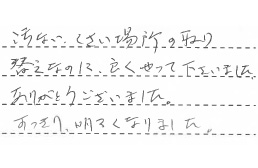 汚ない、くさい場所の取り
替えなのに、良くやって下さいました。
ありがとうございました。
すっきり、明るくなりました。